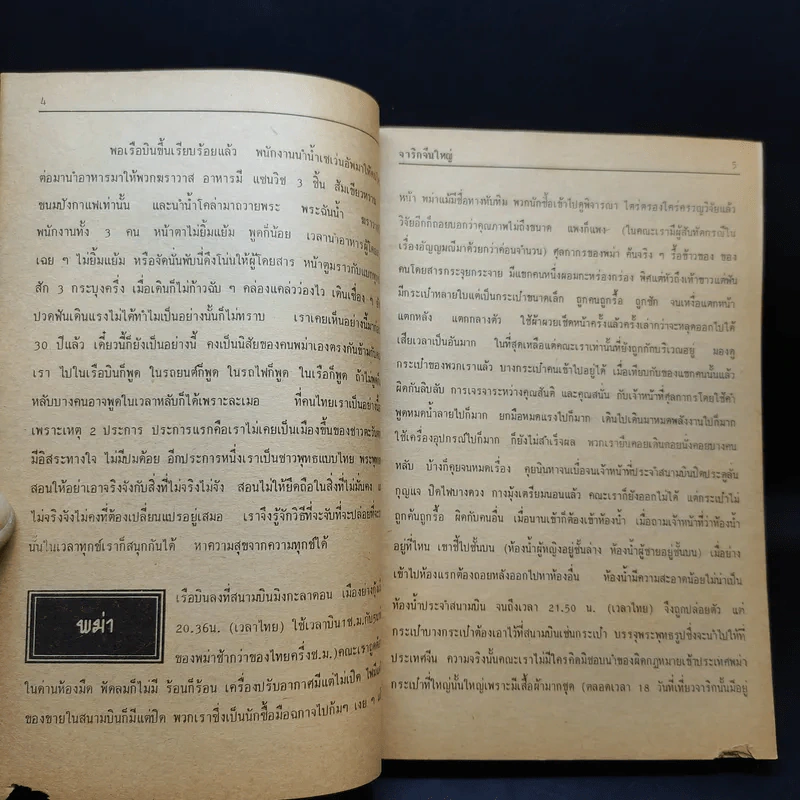 4
พอเรือบินขึ้นเรียบร้อยแล้ว พนักงานนำน้ำเซเว่นอัพมาให้
ต่อมานำอาหารมาให้พวกฆราวาส อาหารมี แซนวิช 3 ชิ้น ส้มเขียวหวาน
ขนมปังกาแฟเท่านั้น และนำน้ำโคล่ามาถวายพระ พระฉันน้ำ
พนักงานทั้ง 3 คน หน้าตาไม่ยิ้มแย้ม พูดก็น้อย เวลานำอาหารผู้โดยสาร
เฉย ๆ ไม่ยิ้มแย้ม หรือจัดนั่นพับนี่ดึงโน่นให้ผู้โดยสาร หน้าตูมราวกับ
สัก 3 กระบุงครึ่ง เมื่อเดินก็ไม่ก้าวฉับ ๆ คล่องแคล่วว่องไว เดินเชื่อง ๆ
ปวดฟันเดินแรงไม่ได้ทำไมเป็นอย่างนั้นก็ไม่ทราบ เราเคยเห็นอย่างนี้มา
30 ปีแล้ว เดี๋ยวนี้ก็ยังเป็นอย่างนี้ คงเป็นนิสัยของคนพม่าเองตรงกันข้ามกับ
เรา ไปในเรือบินก็พูด ในรถยนต์ก็พูด ในรถไฟก็พูด ในเรือก็พูด ถ้าไม่พูด
หลับบางคนอาจพูดในเวลาหลับก็ได้เพราะละเมอ ที่คนไทยเราเป็นอย่างนี้
เพราะเหตุ 2 ประการ ประการแรกคือเราไม่เคยเป็นเมืองขึ้นของชาวตะวันตก
มีอิสระทางใจ ไม่มีปมด้อย อีกประการหนึ่งเราเป็นชาวพุทธแบบไทย พระพุทธ
สอนให้อย่าเอาจริงจังกับสิ่งที่ไม่จริงไม่จัง สอนไม่ให้ยึดถือในสิ่งที่ไม่มั่นคง
ไม่จริงจังไม่คงที่ต้องเปลี่ยนแปรอยู่เสมอ เราจึงรู้จักวิธีที่จะจับที่จะปล่อยที่จะ
นั้นในเวลาทุกข์เราก็สนุกกันได้ หาความสุขจากความทุกข์ได้
พม่า
เรือบินลงที่สนามบินมิงกะลาดอน เมืองย่างกุ้ง
20.36น. (เวลาไทย) ใช้เวลาบิน 1 ช.ม.กับ
ของพม่าช้ากว่าของไทยครึ่งช.ม.) คณะเราถูก
ในด่านห้องมืด พัดลมก็ไม่มี ร้อนก็ร้อน เครื่องปรับอากาศมีแต่ไม่เปิด
ของขายในสนามบินก็มีแต่ปิด พวกเราซึ่งเป็นนักซื้อมือฉกาจไปก้มๆ เงย ๆ
จาริกจีนใหญ่
5
หน้า พม่าแม้มีชื่อทางทับทิม พวกนักซื้อเข้าไปดูพิจารณา ไตร่ตรองใคร่ครวญวิจัยแล้ว
วิจัยอีกก็ถอยบอกว่าคุณภาพไม่ถึงขนาด แพงก็แพง (ในคณะเรามีผู้สันทัดกรณีใน
เรื่องอัญญมณีมาด้วยกว่าค่อนจำนวน) ศุลกากรของพม่า ค้นจริง ๆ รื้อข้าวของ ของ
คนโดยสารกระจุยกระจาย มีแขกคนหนึ่งผอมกะหร่องกร่อง พิศแต่หัวถึงเท้าขาวแต่ฟัน
มีกระเป๋าหลายใบแต่เป็นกระเป๋าขนาดเล็ก ถูกค้นถูกรื้อ ถูกซัก จนเหงื่อแตกหน้า
แตกหลัง แตกกลางตัว ใช้ผ้าผวยเช็ดหน้าครั้งแล้วครั้งเล่ากว่าจะหลุดออกไปได้
เสียเวลาเป็นอันมาก ในที่สุดเหลือแต่คณะเราเท่านั้นที่ยังถูกกักบริเวณอยู่ มองดู
กระเป๋าของพวกเราแล้ว บางกระเป๋าคนเข้าไปอยู่ได้ เมื่อเทียบกับของแขกคนนั้นแล้ว
ผิดกันลิบลับ การเจรจาระหว่างคุณสันติ และคุณสนั่น กับเจ้าหน้าที่ศุลกากรโดยใช้คำ
พูดหมดน้ำลายไปก็มาก ยกมือหมดแรงไปก็มาก เดินไปเดินมาหมดพลังงานไปก็มาก
ใช้เครื่องอุปกรณ์ไปก็มาก ก็ยังไม่สำเร็จผล พวกเรายืนคอยเดินคอยนั่งคอยบางคน
หลับ บ้างก็คุยจนหมดเรื่อง คุยนินทาจนเบื่อจนเจ้าหน้าที่ประจำสนามบินปิดประตูลั่น
กุญแจ ปิดไฟบางดวง กางมุ้งเตรียมนอนแล้ว คณะเราก็ยังออกไม่ได้ แต่กระเป๋าไม่
ถูกค้นถูกรื้อ ผิดกับคนอื่น เมื่อนานเข้าก็ต้องเข้าห้องน้ำ เมื่อถามเจ้าหน้าที่ว่าห้องน้ำ
อยู่ที่ไหน เขาชี้ไปชั้นบน (ห้องน้ำผู้หญิงอยู่ชั้นล่าง ห้องน้ำผู้ชายอยู่ชั้นบน) เมื่อย่าง
เข้าไปห้องแรกต้องถอยหลังออกไปหาห้องอื่น ห้องน้ำมีความสะอาดน้อยไม่น่าเป็น
ห้องน้ำประจำสนามบิน จนถึงเวลา 21.50 น. (เวลาไทย) จึงถูกปล่อยตัว แต่
กระเป๋าบางกระเป๋าต้องเอาไว้ที่สนามบินเช่นกระเป๋า บรรจุพระพุทธรูปซึ่งจะนำไปให้ที่
ประเทศจีน ความจริงนั้นคณะเราไม่มีใครคิดมิชอบนำของผิดกฎหมายเข้าประเทศพม่า
กระเป๋าที่ใหญ่นั้นใหญ่เพราะมีเสื้อผ้ามากชุด (ตลอดเวลา 18 วันที่เที่ยวจาริกนั้นมีอยู่